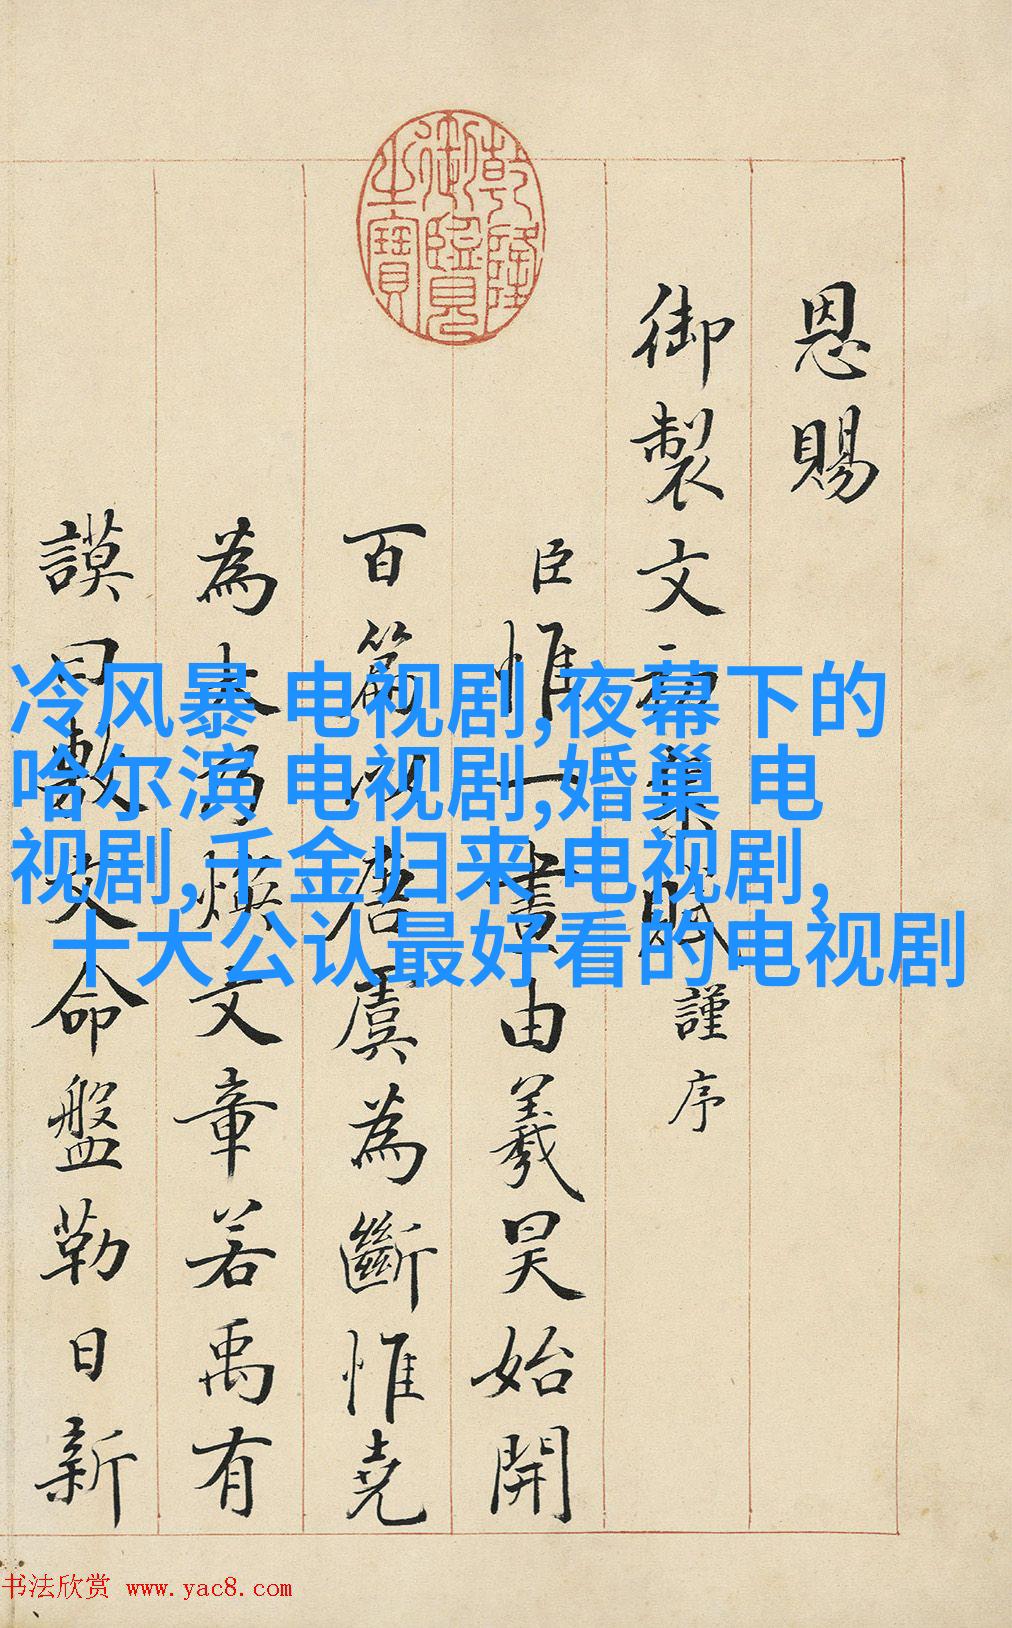 乾隆御覽之寶
恩賜
御製文初集謹序
臣惟一畫由羲昊始開
百篇以唐虞為斷惟堯
為大乃煥文章若禹有
謨曰敷文命盤勒日新
冷风暴 电视剧,夜幕下的
哈尔滨 电视剧,婚巢 电
视剧,千金归来 电视剧,
十大公认最好看的电视剧
书法欣赏 www.yac8.com